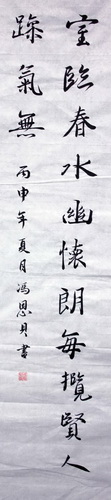 室臨春水幽懷朗每攬賢人
躁氣無
丙申年夏月馮恩貝書